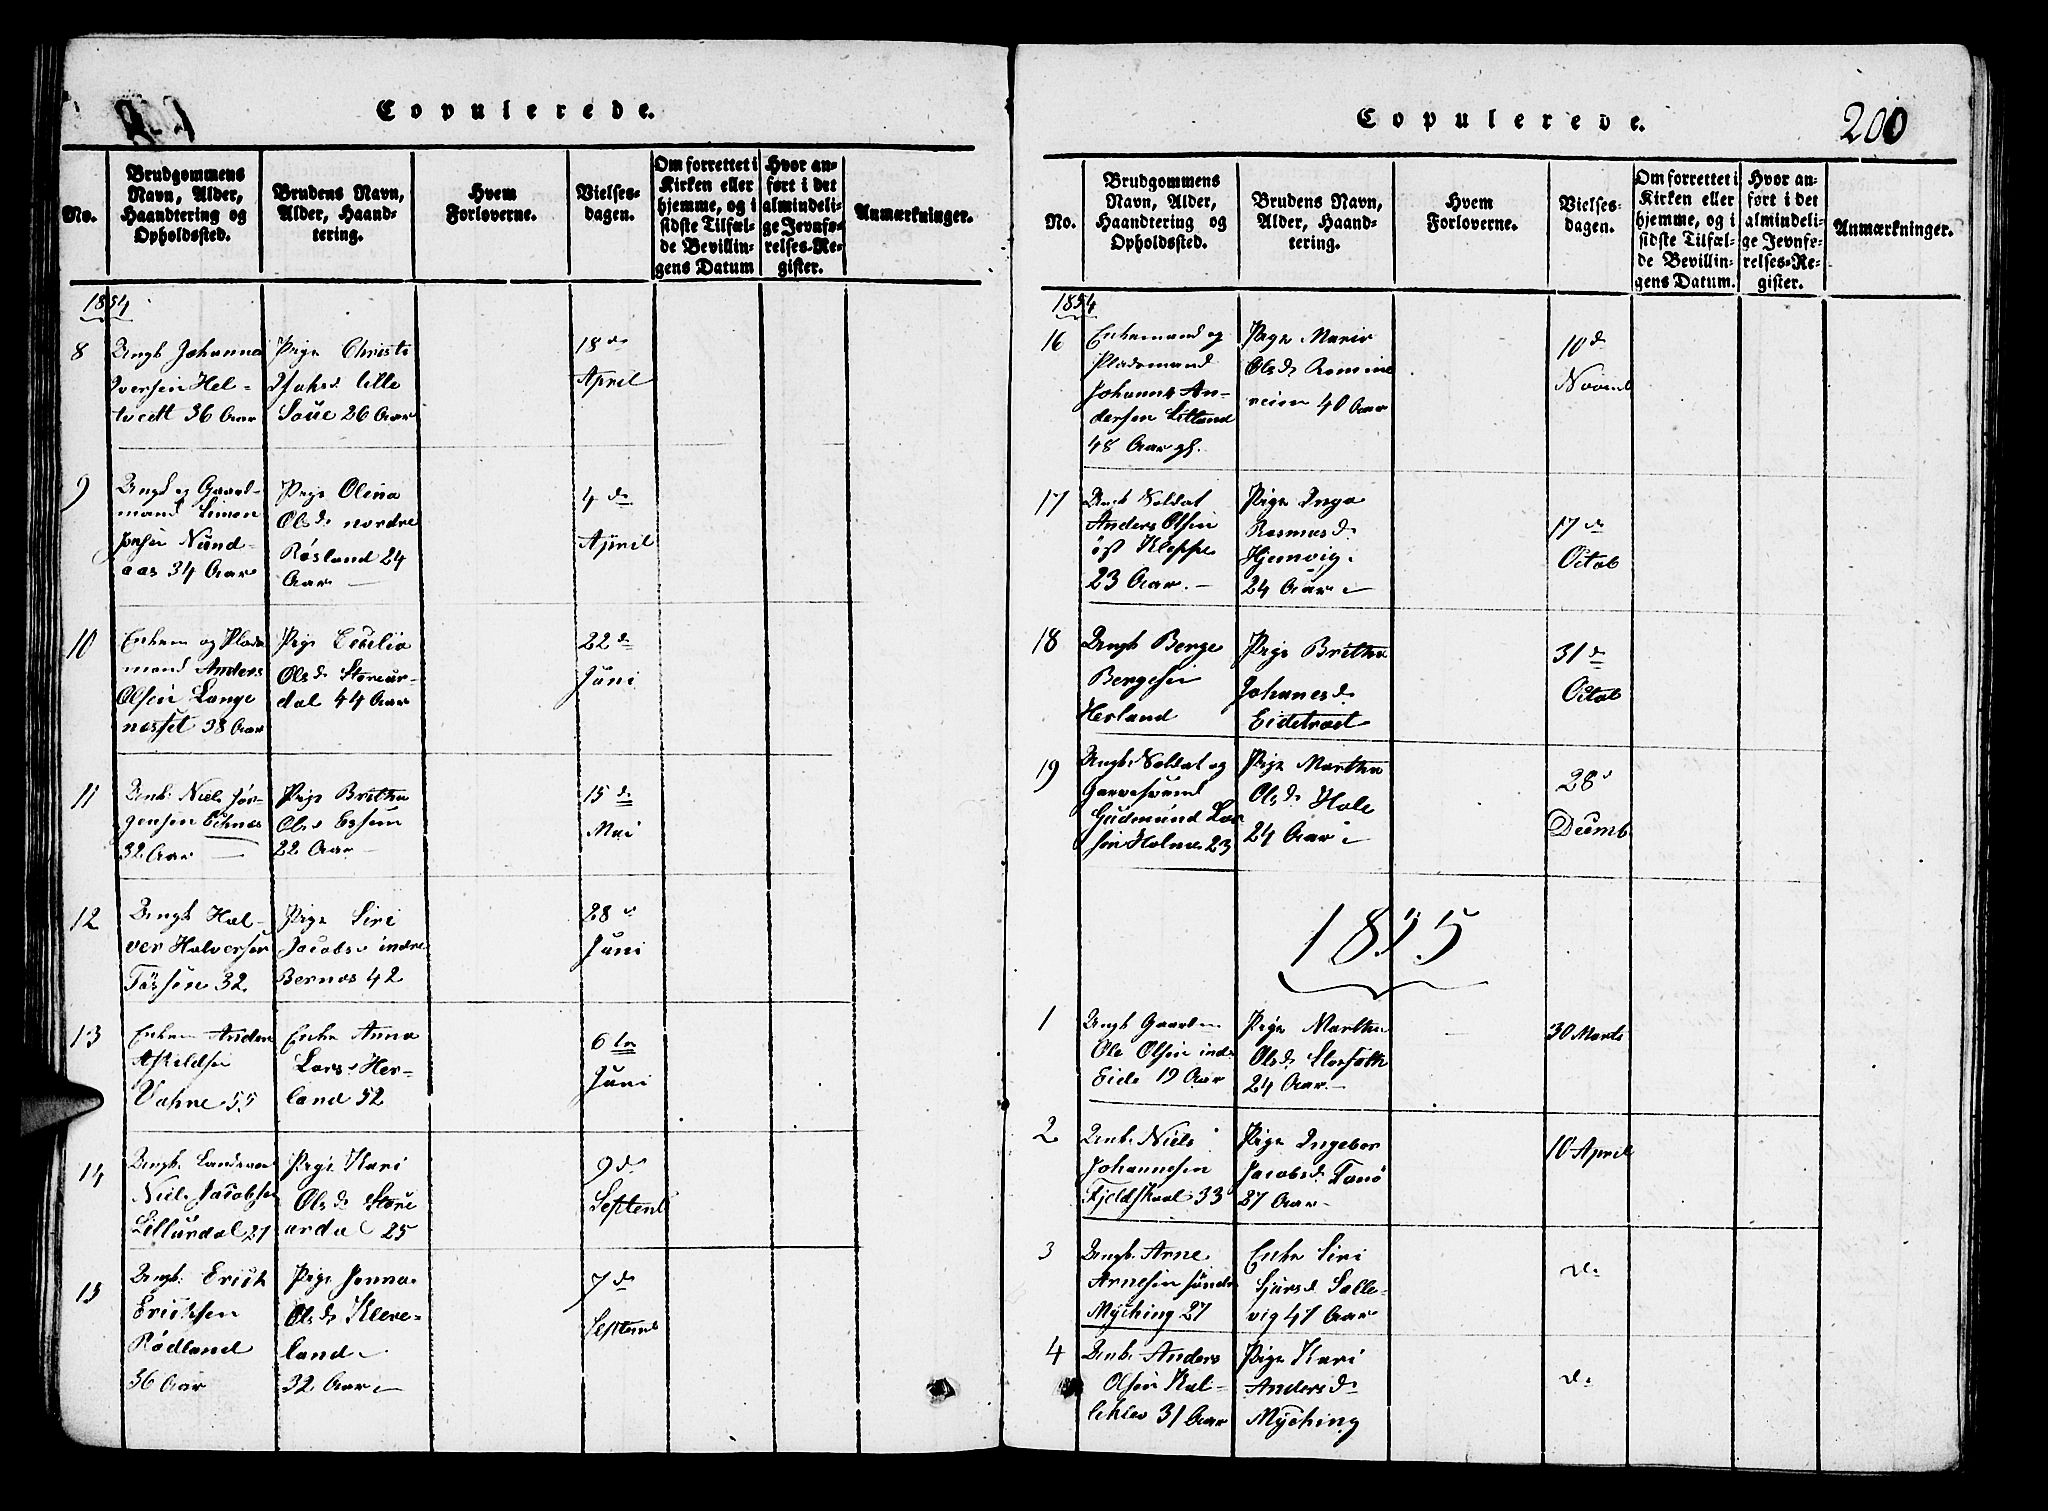 Copulerede.
No.
Brudgommens
Navn, Alder,
Haandtering og
Opholdssted.
Brudens Navn,
Alder, Haand-
tering.
Hvem
Forloverne.
Vielses-
dagen.
Om forrettet i
Kirken eller
hjemme, og i
sidste Tilfæl-
de Bevillin-
gens Datum
Hvor an-
ført i det
almindeli-
ge Jevnfø-
relses-Re-
gister.
Anmærkninger.
1834
8
Ungk Johanna
Iversen Hel-
tvedt 36 Aar
Pige Christi
lille
Soue 26 Aar
18 de
April
9
Ungk og Gaard-
mand Simon
Nund-
aas 34 Aar
Pige Olina
Olsd nordre
Røsland 24
Aar
4 de
April
10
Enkem og Plads
mand Anders
Olsen Lange
nesset 38 Aar
Pige Cecilia
Olsd Storeur-
dal 44 Aar
22 de
Juni
11
Unk. Niels Jør-
gensen
32 Aar
Pige Britha
Olsd
22 Aar
15 de
Mai
12
Ungk Hal-
ver Halversen
32.
Pige Siri
Jacobsd indre
Bernes 42
28 d
Juni
13
Enkem Anders
Askildsen
Vahne 55
Enke Anna
Larsd Her-
land 52
6 te
Juni
14
Ungk. Landsven
Niels Jacobsen
Lillurdal 27
Pige Kari
Olsd Store
urdal 25
9 de
Septemb
15
Ungk. Erick
Ericksen
Rødland
36 Aar
Pige Jonna
Olsd Kleve-
land
32 Aar
7 de
Septemb
Copulerede.
200
No.
Brudgommens
Navn, Alder,
Haandtering og
Opholdssted.
Brudens Navn,
Alder, Haand-
tering.
Hvem
Forloverne.
Vielses-
dagen.
Om forrettet i
Kirken eller
hjemme, og i
sidste Tilfæl-
de Bevillin-
gens Datum.
Hvor an-
ført i det
almindeli-
ge Jevnfø-
relses-Re-
gister.
Anmærkninger.
1834
16
Enkemand og
Pladsmand
Johannes An-
dersen Litland
48 Aar gl.
Pige Marie
Olsd
reim 40 Aar
10 de
Novemb
17
Unk Soldat
Anders Olsen
øst Kleppe
23 Aar.
Pige Inga
Rasmusd
Hjemvig
24 Aar
17 de
Octob
18
Ungk Berge
Bergesen
Herland
Pige Britha
Johanesd
Eidetræt
31 d
Octob
19
Ungk. Soldat og
Gudmund Lar
sen Holme 23
Pige Martha
Olsd Hole
24 Aar
28 d
Decmb
1835
1
Ungk Gaardm
Ole Olsen indr
Eide 19 Aar
Pige Martha
Olsd
24 Aar
30 Marts
2
Unk. Niels
Johannesen
Fjeldskaal 33
Pige Ingebor
Jacobsd
27 Aar
10 April
3
Ungk. Arne
Arnesen søndr
Myching 27
Enke Siri
Sjursd Salle-
vig 47 Aar
d.
4
Unk. Anders
Olsen Kal-
leklev 31 Aar
Pige Kari
Andersd
Myching
d.